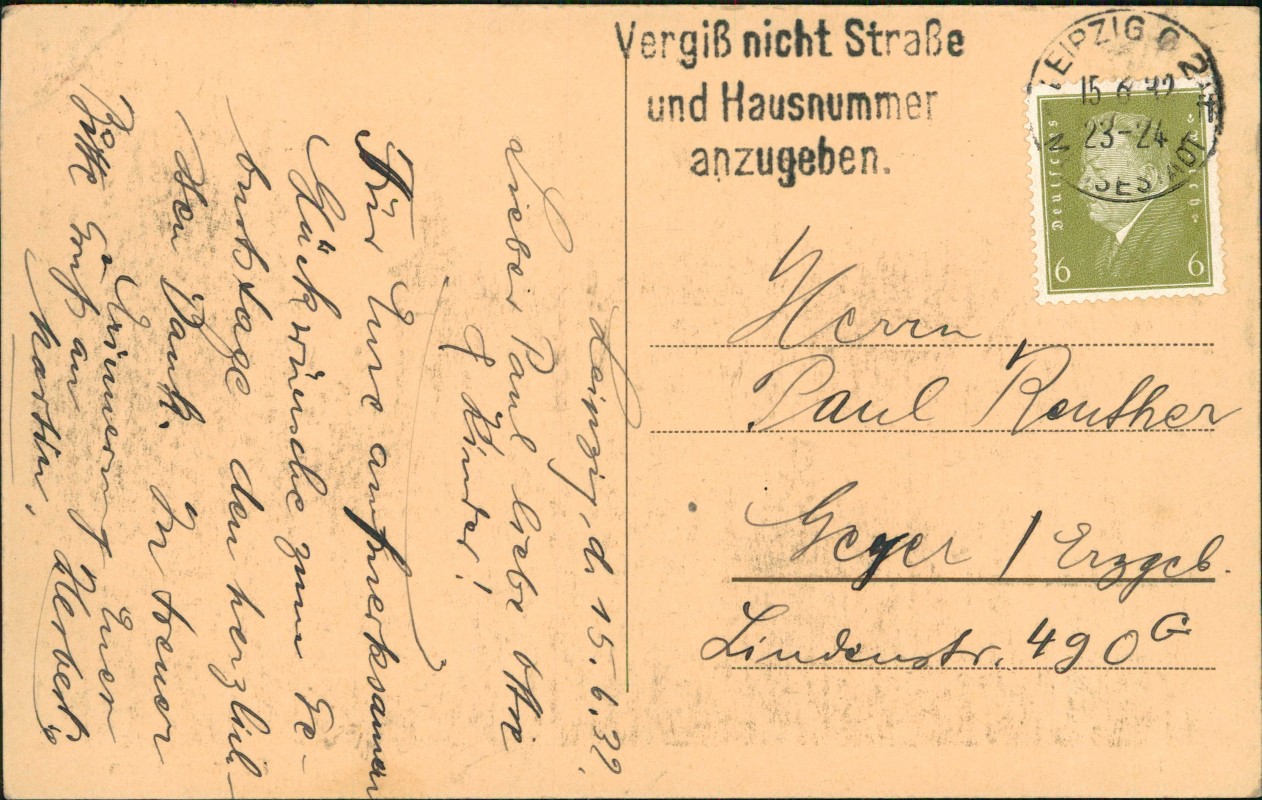 Leipzig, d. 15.6.32.
Lieber Paul liebe
Kinder!
Für Eure aufmerksamen
Glückwünsche zum Ge-
burtstage den herzlich-
sten Dank. In treuer
Erinnerung Euer
Herbert.
Bitte Gruß an
Martin.
Vergiß nicht Straße
und Hausnummer
anzugeben.
LEIPZIG C 2
15.6.32
23-24
MESSESTADT
Deutsches Reich
6 6
Herrn
Paul Reuther
Geyer / Erzgeb.
Lindenstr. 490 G